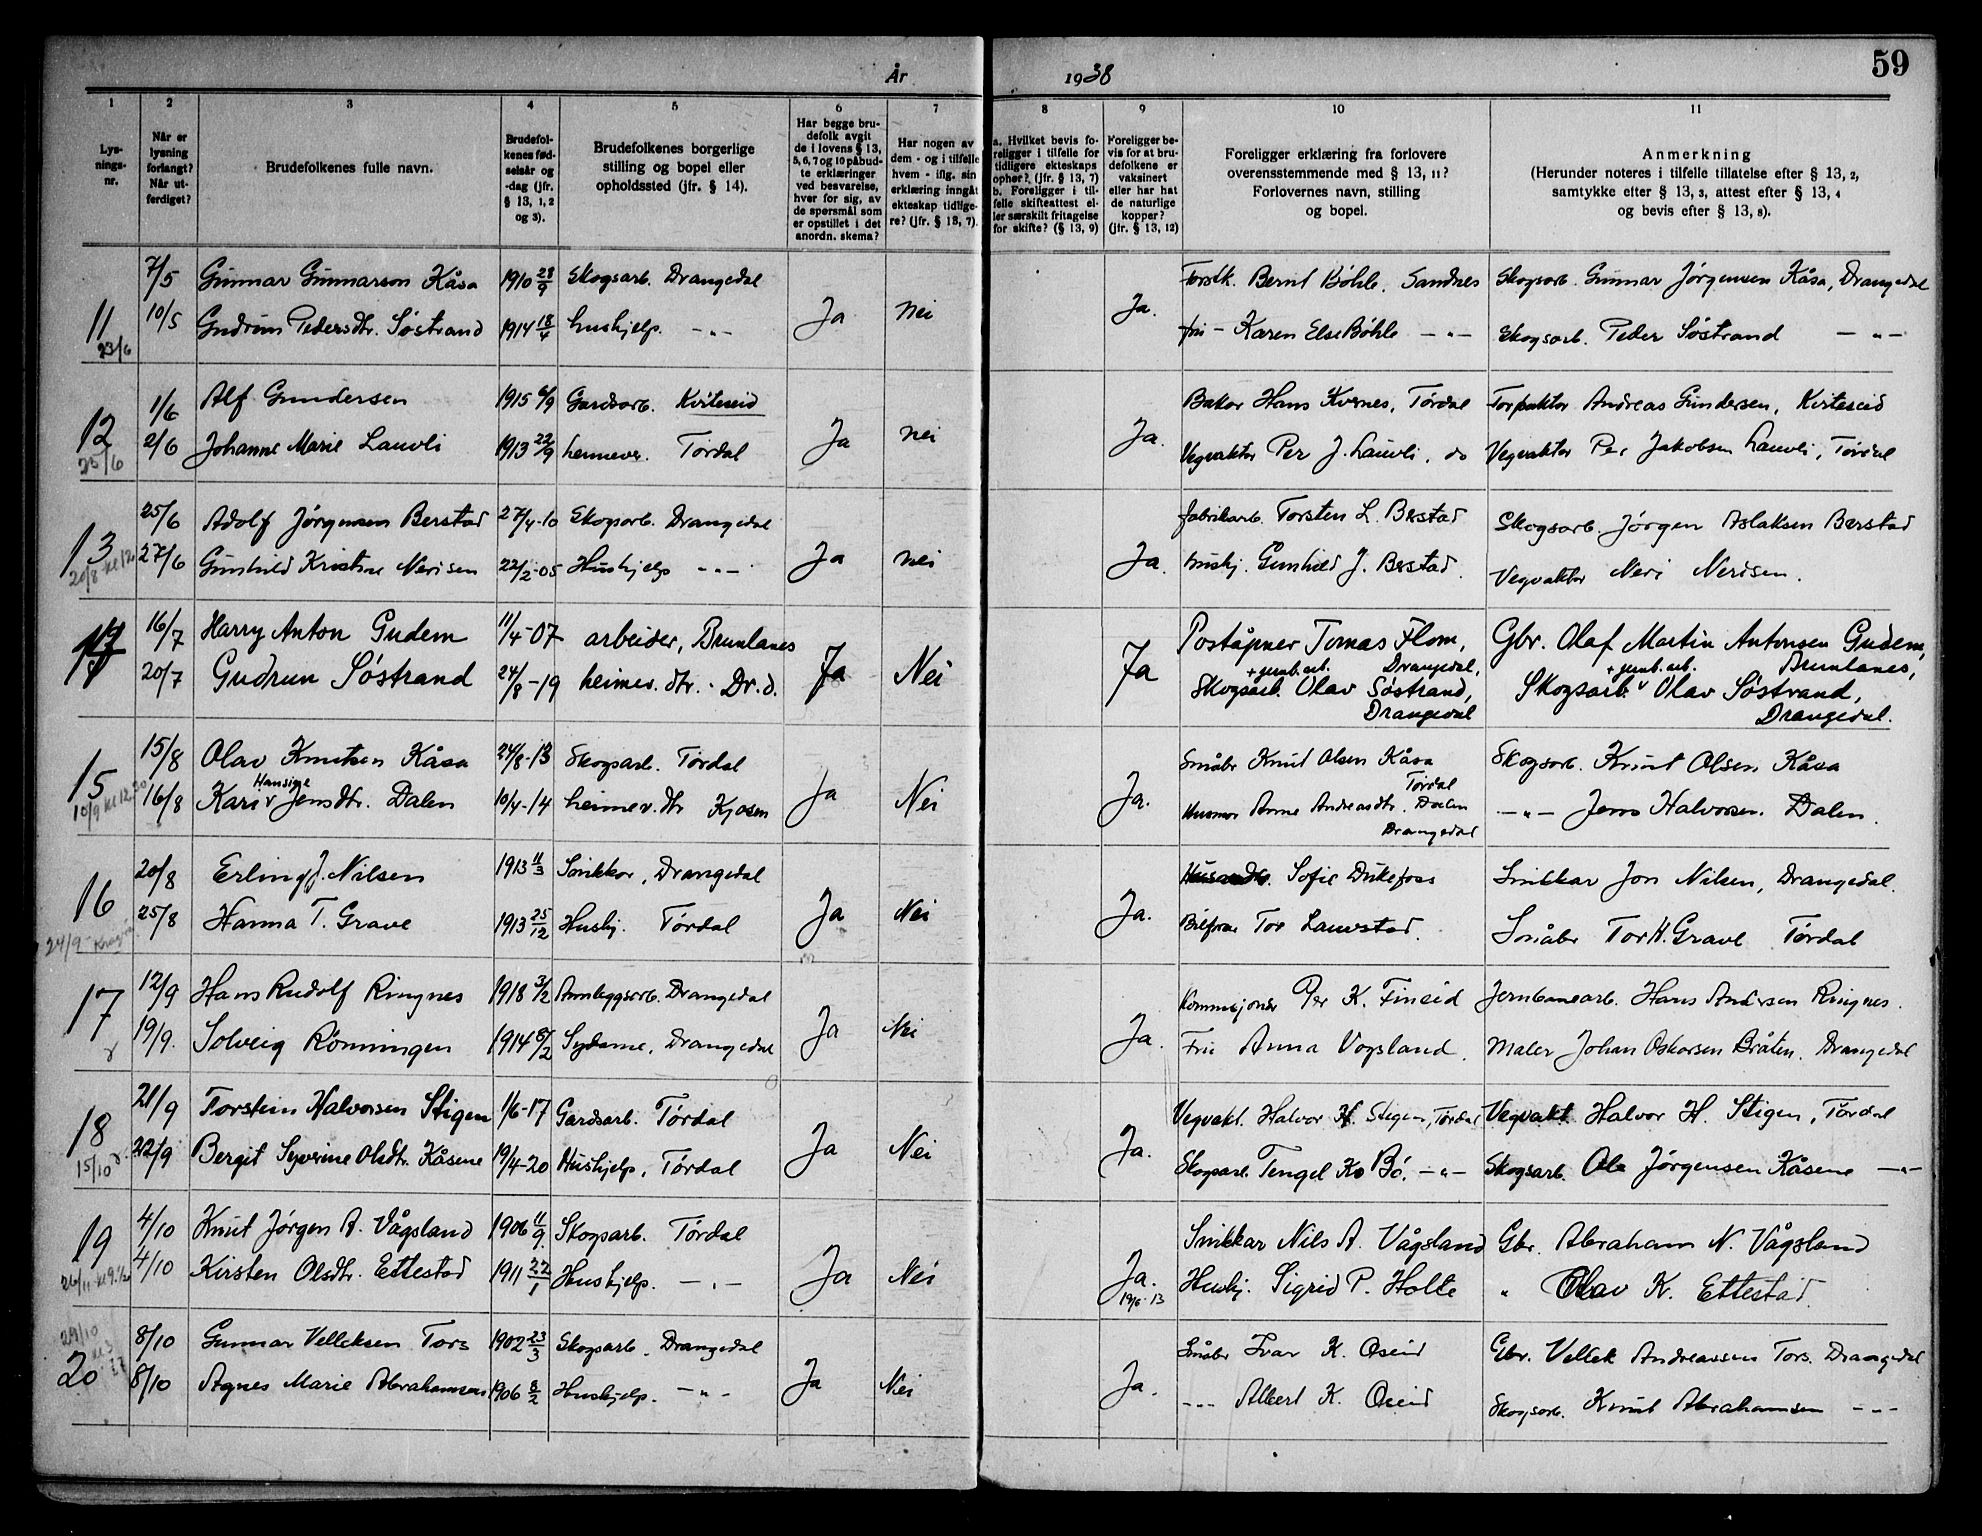 År 1938
59
1 2 3 4 5 6 7 8 9 10 11
Lys-
nings-
nr.
Når er
lysning
forlangt?
Når ut-
ferdiget?
Brudefolkenes fulle navn.
Brudefol-
kenes fød-
selsår og
-dag (jfr.
§ 13, 1, 2
og 3).
Brudefolkenes borgerlige
stilling og bopel eller
opholdssted (jfr. § 14).
Har begge bru-
defolk avgit
de i lovens § 13,
5, 6, 7 og 10 påbud-
te erklæringer
ved besvarelse,
hver for sig, av
de spørsmål som
er opstillet i det
anordn. skema?
Har nogen av
dem - og i tilfelle
hvem - iflg. sin
erklæring inngått
ekteskap tidlige-
re? (jfr. § 13, 7).
a. Hvilket bevis fo-
religger i tilfelle for
tidligere ekteskaps
ophør?. (jfr. § 13, 7)
b. Foreligger i til-
felle skifteattest el-
ler særskilt fritagelse
for skifte? (§ 13, 9)
Foreligger be-
vis for at bru-
defolkene er
vaksinert
eller har hat
de naturlige
kopper?
(jfr. § 13, 12)
Foreligger erklæring fra forlovere
overensstemmende med § 13, 11?
Forlovernes navn, stilling
og bopel.
Anmerkning
(Herunder noteres i tilfelle tillatelse efter § 13, 2,
samtykke efter § 13, 3, attest efter § 13, 4
og bevis efter § 13, 8).
7/5 Gunnar Gunnarson Kåsa 1910 28/9 Skogsarb. Drangedal Forstk. Bernt Bøhle, Sandnes Skogsarb. Gunnar Jørgensen Kåsa, Drangedal
11 10/5 Gudrun Pedersdtr. Søstrand 1914 18/4 hushjelp. -"- Ja Nei Ja. fru - Karen Else Bøhle -"- Skogsarb. Peder Søstrand -"-
23/6
1/6 Alf Gundersen 1915 6/9 Gardsarb. Kviteseid Baker Hans Kvernes, Tørdal Andreas Gundersen, Kviteseid
12 2/6 Johanne Marie Lauvli 1913 22/9 heimev. Tørdal Ja nei Ja. Vegvakter Per J. Lauvli, do Vegvakter Per Jakobsen Lauvli, Tørdal
25/6
25/6 Adolf Jørgensen Berstad 27/4-10 Skogsarb. Drangedal fabrikarb. Torsten L. Berstad Skogsarb. Jørgen Aslaksen Berstad
13 27/6 Gunhild Kristine Nerisen 22/2-05 Hushjelp -"- Ja nei Ja. hushj. Gunhild J. Berstad. Vegvakter Neri Nerisen.
20/8 kl 12
16/7 Harry Anton Gudem 11/4-07 arbeider, Brunlanes Poståpner Tomas Flom, Gbr. Olaf Martin Antonsen Gudem,
Drangedal, Brunlanes,
+ jernb.arb. + jernb.arb.
20/7 Gudrun Søstrand 24/8-19 heimev. dtr. - Dr.d. Ja Nei Ja Skogsarb. Olav Søstrand, Skogsarb. Olav Søstrand,
Drangedal Drangedal.
15/8 Olav Knutsen Kåsa 24/8-13 Skogsarb. Tørdal Småbr Knut Olsen Kåsa Skogsarb. Knut Olsen Kåsa
Tørdal
Hansine
15 16/8 Kari Jensdtr. Dalen 10/4-14 heimev. dtr Kjosen Ja Nei Ja. Husmor Anne Andreasdtr. Dalen -"- Jens Halvorsen. Dalen.
10/9 kl 12,30 Drangedal
20/8 Erling J. Nilsen 1913 11/3 Snikkar, Drangedal Sofie Dukefoss Snikkar Jon Nilsen, Drangedal.
16 25/8 Hanna T. Grave 1913 25/12 Hushj. Tørdal Ja Nei Ja. Tor Lauvstad. Småbr Tor H. Grave Tørdal
24/9
12/9 Hans Rudolf Ringnes 1918 3/2 Annleggsarb. Drangedal Kommisjonær Per K. Finseid Jernbanearb. Hans Andersen Ringnes.
17 19/9. Solveig Rønningen 1914 8/2 Sydame, Drangedal Ja Nei Ja. Fru Anna Vogsland. Maler Johan Oskarsen Bråten. Drangedal
21/9 Torstein Halvorsen Stigen 1/6-17 Gardsarb. Tørdal Vegvakt. Halvor H. Stigen, Tørdal Vegvakt Halvor H. Stigen, Tørdal
18 22/9 Bergit Syverine Olsdtr. Kåsene 19/4-20 Hushjelp, Tørdal Ja Nei Ja. Skogsarb. Tengel Ko Bö. -"- Skogsarb. Ole Jørgensen Kåsene -"-
15/10
4/10 Knut Jørgen A. Vågsland 1906 11/9 Skogsarb. Tørdal Snikkar Nils A. Vågsland Gbr. Abraham N. Vågsland
19 4/10 Kirsten Olsdtr. Ettestad 1911 22/1 Hushjelp. -"- Ja Nei Ja. Hushj. Sigrid P. Holte " Olav K. Ettestad
26/11 kl 9.1/2 19/6-13
29/10
8/10 Gunnar Velleksen Tors 1902 23/3 Skogsarb. Drangedal Småbr Ivar K. Oseid Gbr. Vellek Andreassen Tors. Drangedal
20 8/10 Agnes Marie Abrahamsen 1906 8/2 Hushjelp. -"- Ja Nei Ja. -"- Albert K. Oseid Skogsarb. Knut Abrahamsen -"-